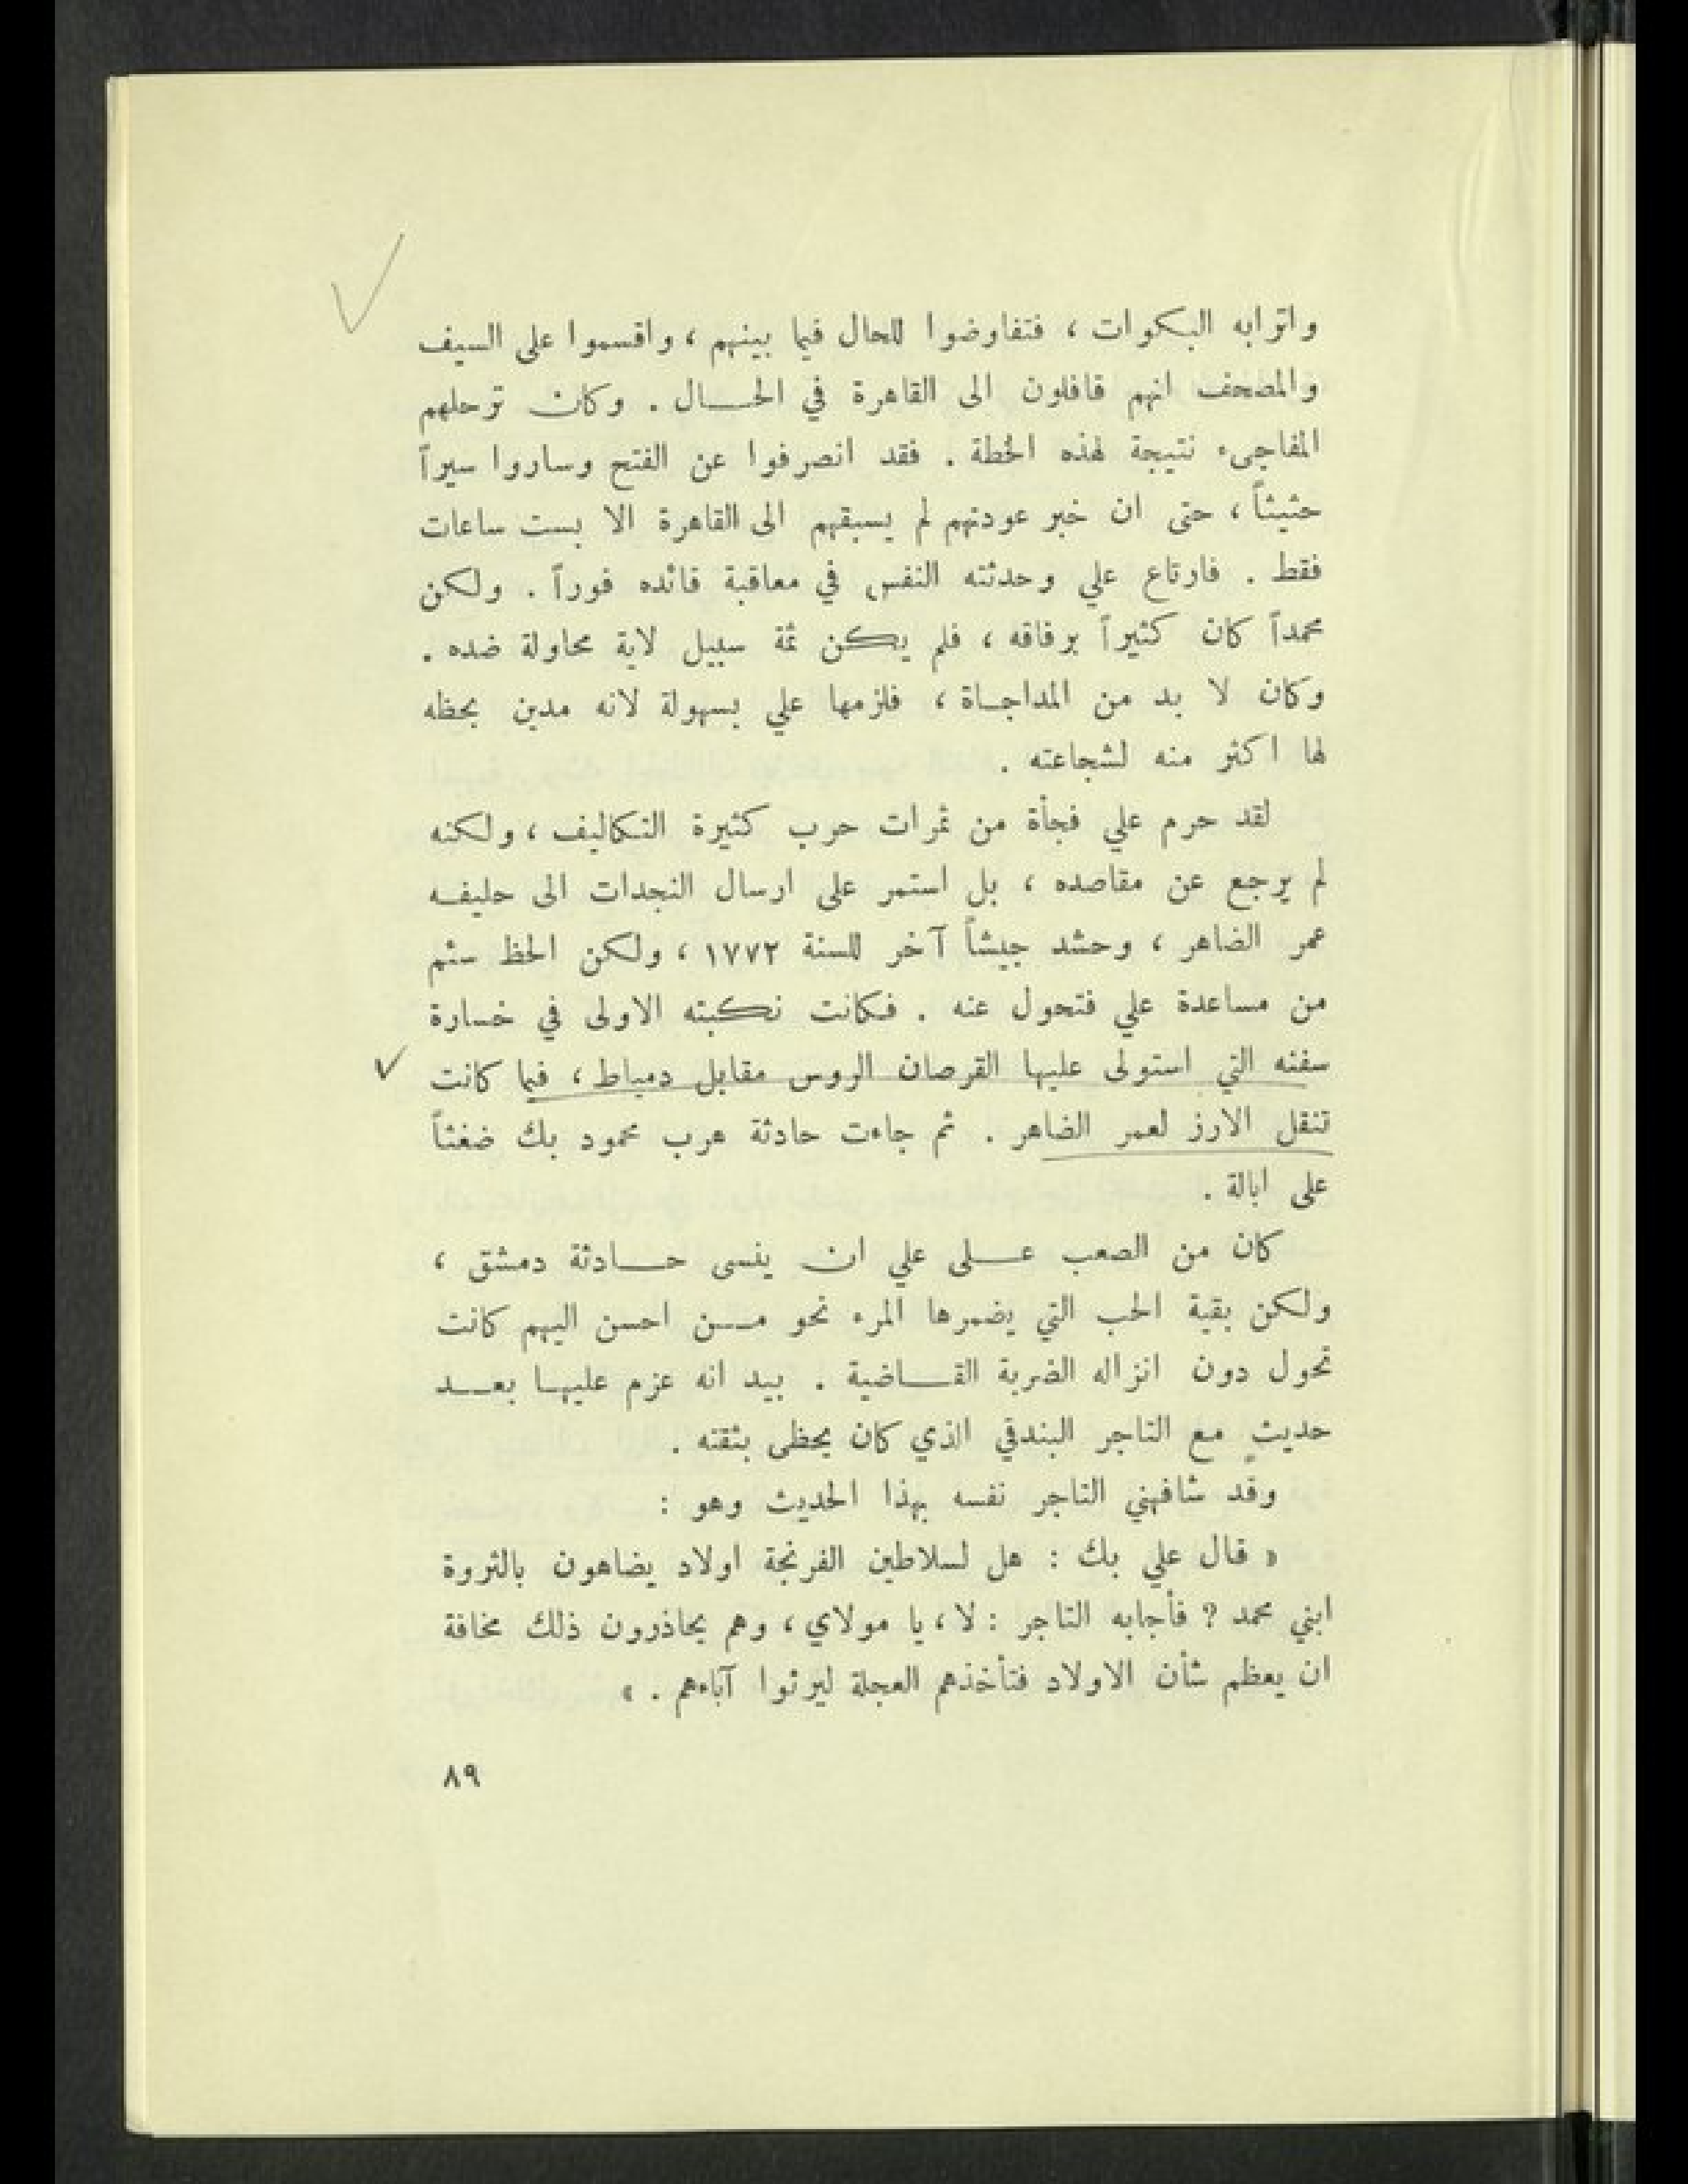 واترابه البكوات ، فتفاوضوا للحال فيما بينهم ، واقسموا على السيف
والمصحف انهم قافلون الى القاهرة في الحال . وكان ترحلهم
المفاجىء نتيجة لهذه الخطة . فقد انصرفوا عن الفتح وساروا سيراً
حثيثاً ، حتى ان خبر عودتهم لم يسبقهم الى القاهرة الا بست ساعات
فقط . فارتاع علي وحدثته النفس في معاقبة قائده فوراً . ولكن
محمداً كان كثيراً برفاقه ، فلم يكن ثمة سبيل لاية محاولة ضده .
وكان لا بد من المداجاة ، فلزمها علي بسهولة لانه مدين بحظه
لها اكثر منه لشجاعته .
لقد حرم علي فجأة من ثمرات حرب كثيرة التكاليف ، ولكنه
لم يرجع عن مقاصده ، بل استمر على ارسال النجدات الى حليفه
عمر الضاهر ، وحشد جيشاً آخر للسنة ١٧٧٢ ، ولكن الحظ سئم
من مساعدة علي فتحول عنه . فكانت نكبته الاولى في خسارة
سفنه التي استولى عليها القرصان الروس مقابل دمياط ، فيما كانت
تنقل الارز لعمر الضاهر . ثم جاءت حادثة هرب محمود بك ضغثاً
على ابالة .
كان من الصعب على علي ان ينسى حادثة دمشق ،
ولكن بقية الحب التي يضمرها المرء نحو من احسن اليهم كانت
تحول دون انزاله الضربة القاضية . بيد انه عزم عليها بعد
حديثٍ مع التاجر البندقي الذي كان يحظى بثقته .
وقد شافهني التاجر نفسه بهذا الحديث وهو :
« قال علي بك : هل لسلاطين الفرنجة اولاد يضاهون بالثروة
ابني محمد ? فأجابه التاجر : لا ، يا مولاي ، وهم يحاذرون ذلك مخافة
ان يعظم شأن الاولاد فتأخذهم العجلة ليرثوا آباءهم . »
٨٩